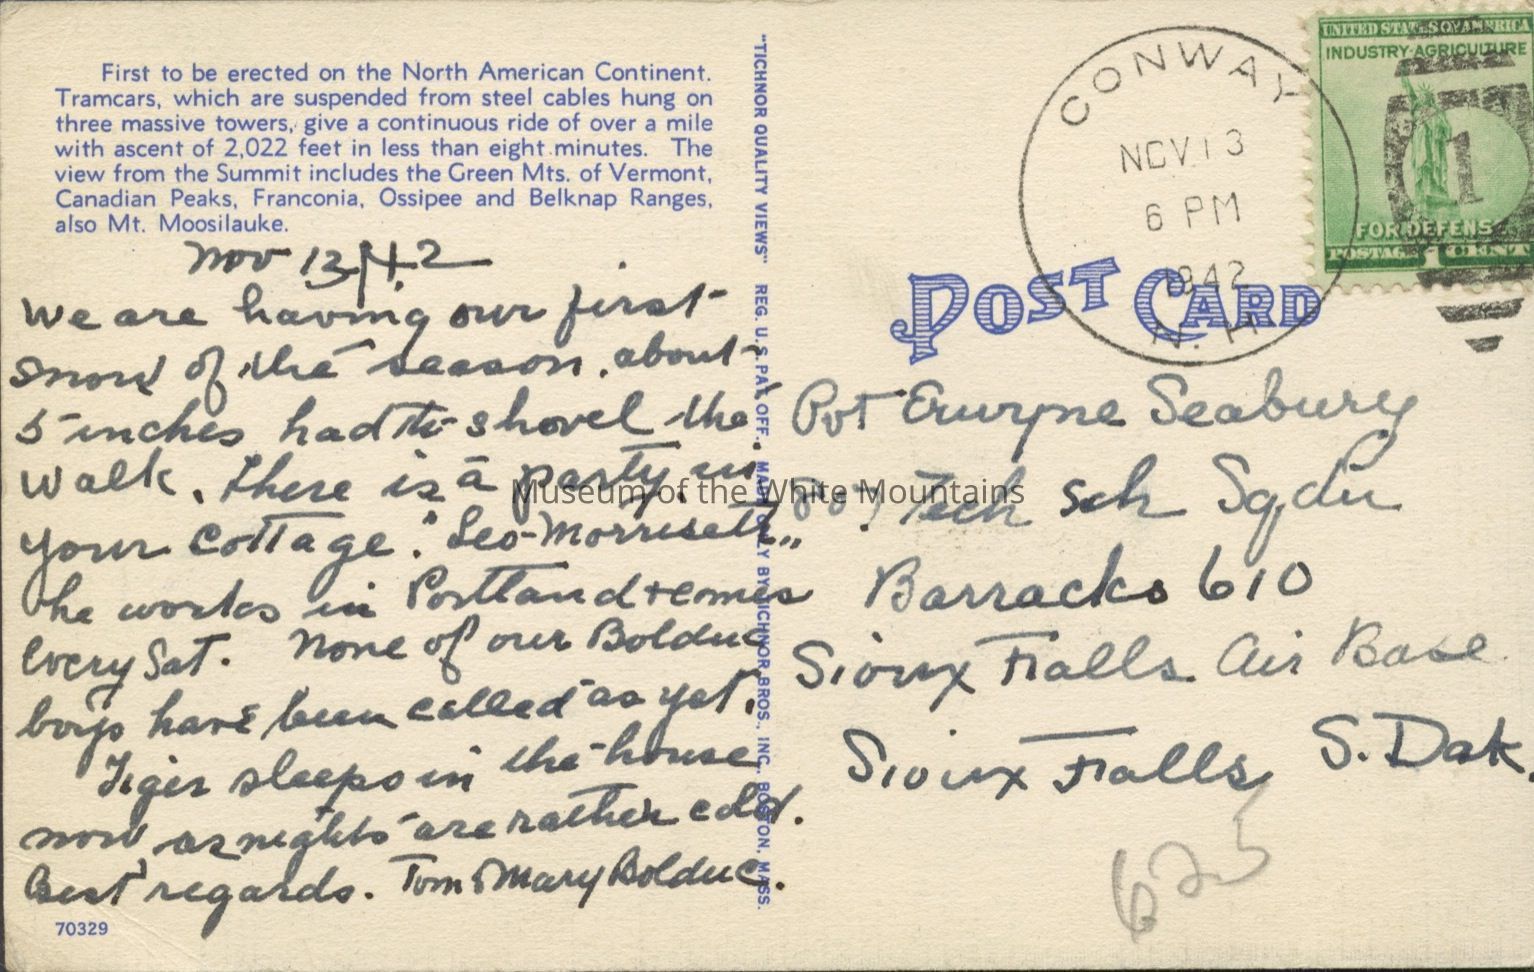 First to be erected on the North American Continent.
Tramcars, which are suspended from steel cables hung on
three massive towers, give a continuous ride of over a mile
with ascent of 2,022 feet in less than eight minutes. The
view from the Summit includes the Green Mts. of Vermont,
Canadian Peaks, Franconia, Ossipee and Belknap Ranges,
also Mt. Moosilauke.
Nov 13 42
We are having our first
snow of the season. about
5 inches had to shovel the
walk. there is a party in
your cottage. "Leo Morrisett"
he works in Portland + comes
every Sat. None of our Bolduc
boys have been called as yet.
Tiger sleeps in the house
now as nights are rather cold.
Best regards. Tom & Mary Bolduc.
70329
"TICHNOR QUALITY VIEWS" REG. U. S. PAT. OFF. MADE ONLY BY TICHNOR BROS., INC., BOSTON, MASS.
CONWAY
NOV 13
6 PM
1942
N. H.
UNITED STATES OF AMERICA
INDUSTRY AGRICULTURE
1
FOR DEFENSE
POSTAGE 1 CENT
POST CARD
Pvt Erwyne Seabury
Tech Sch Sqdn
Barracks 610
Sioux Falls Air Base
Sioux Falls, S. Dak.
625
Museum of the White Mountains